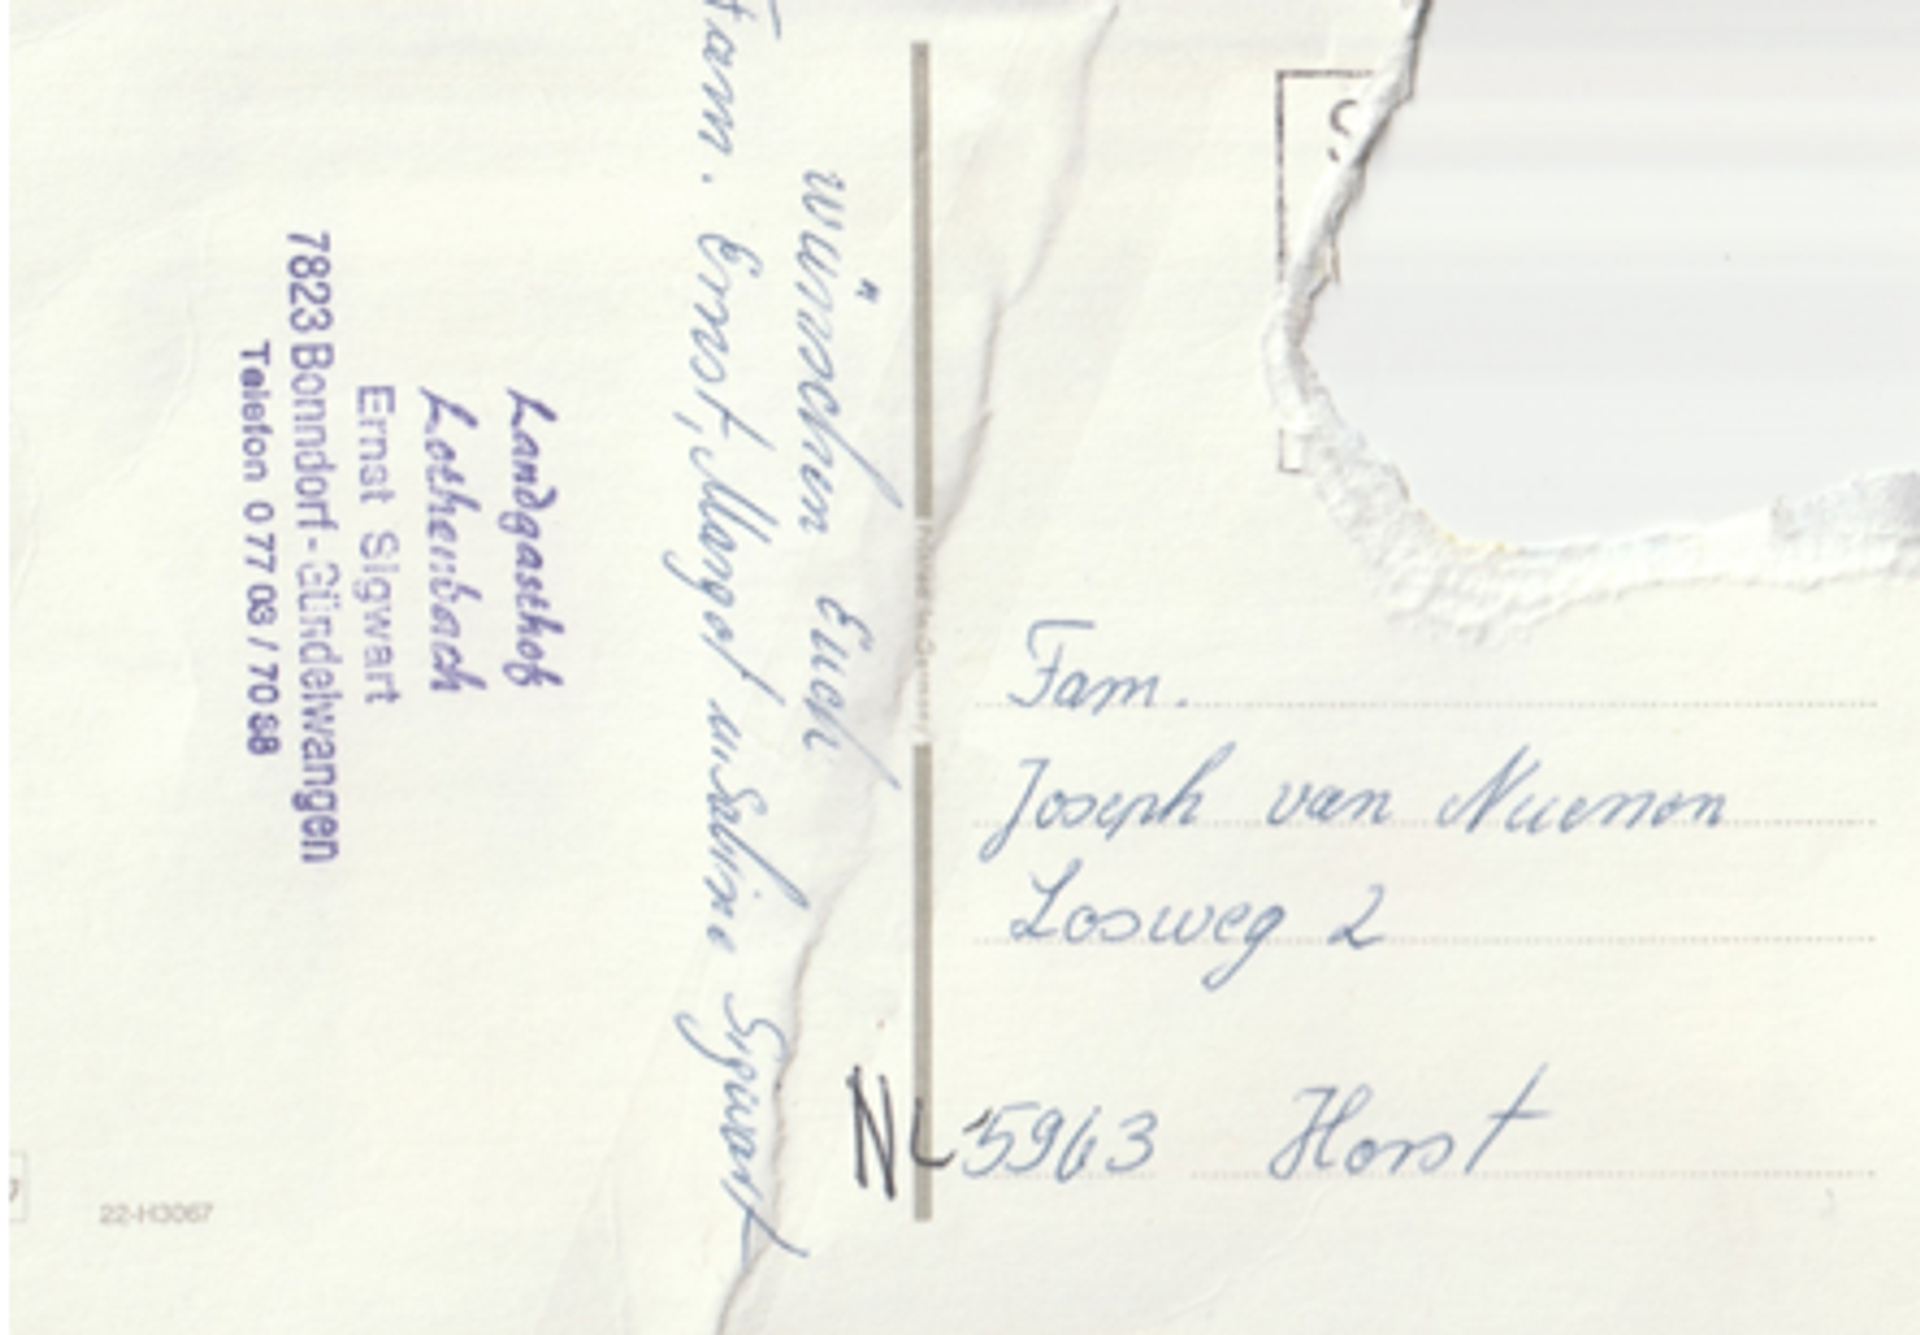 wünschen Euch
Fam. Ernst, Margot u. Sabine Sigwart
Landgasthof
Lothenbach
Ernst Sigwart
7823 Bonndorf-Gündelwangen
Telefon 0 77 03 / 70 88
Fam.
Joseph van Nuenen
Losweg 2
NL 5963 Horst
22-H3067